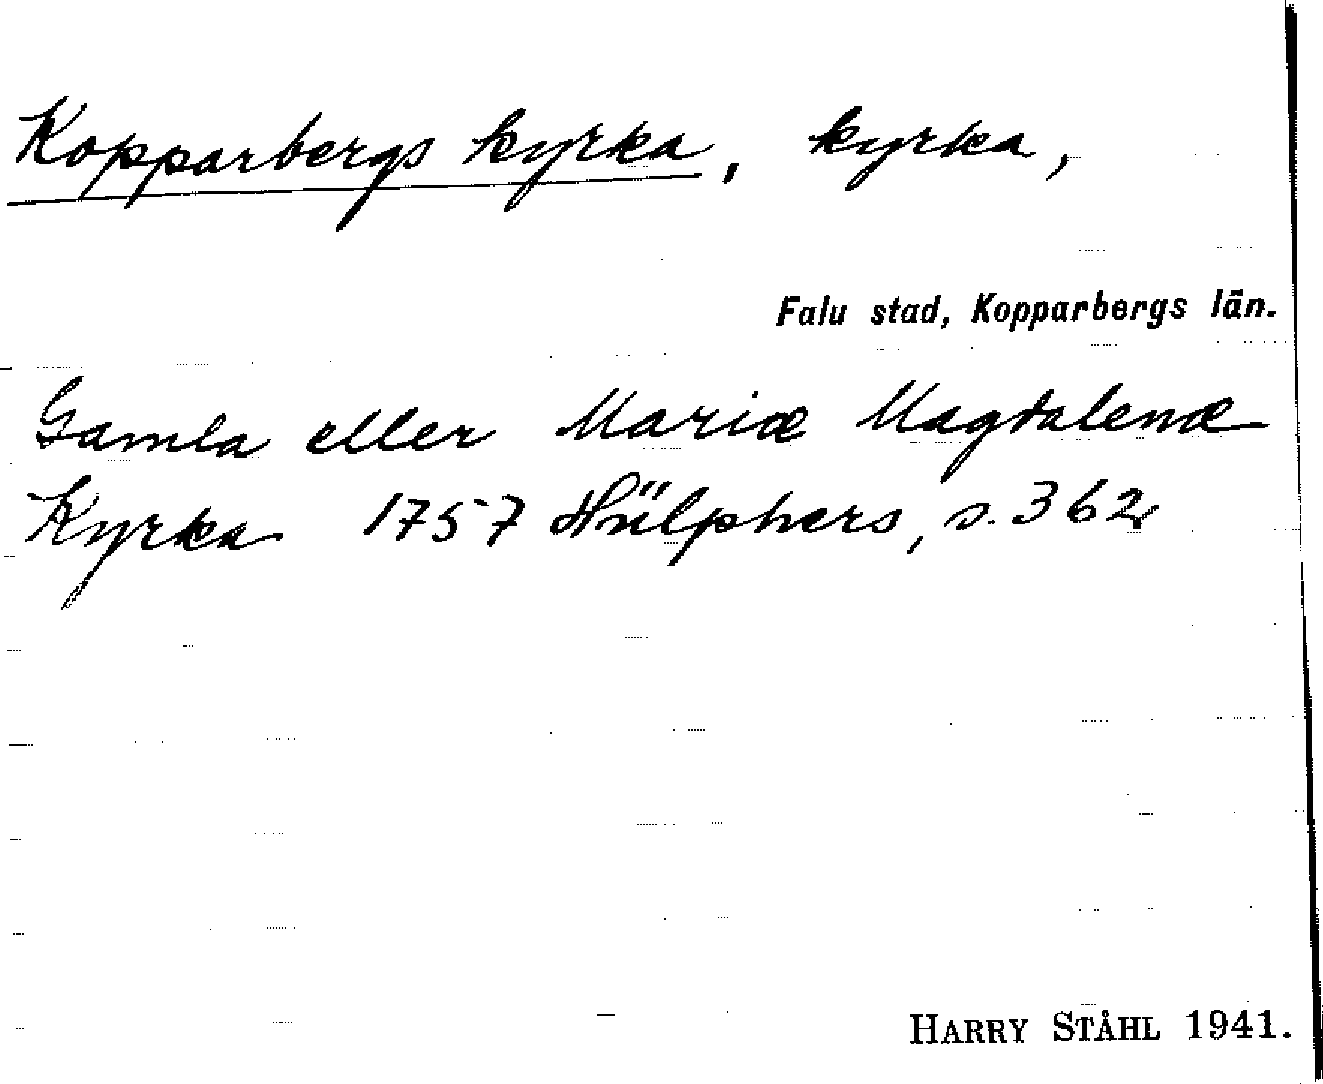 Kopparbergs kyrka, kyrka,
Falu stad, Kopparbergs län.
Gamla eller Mariæ Magdalenæ
Kyrka 1757 Hülphers, s. 362
HARRY STÅHL 1941.